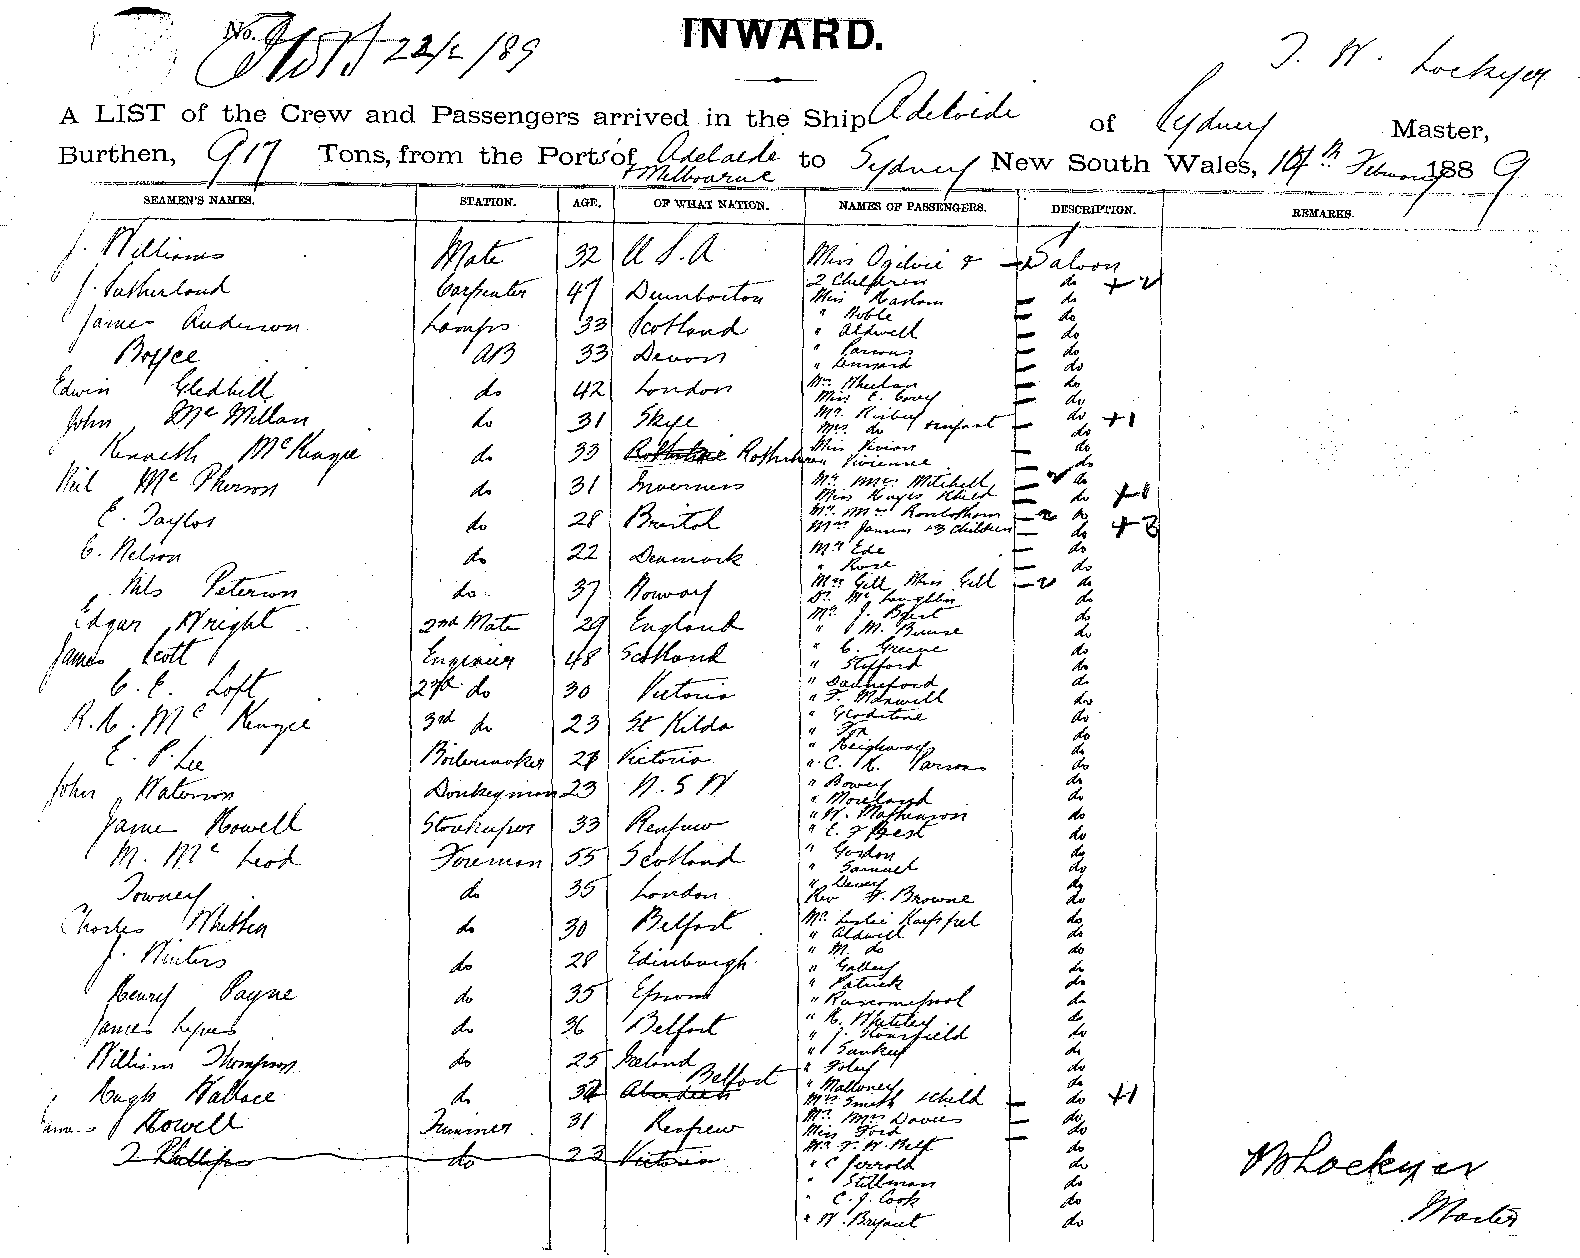 No.
22/2/89
INWARD.
T. W. Lockyer
A LIST of the Crew and Passengers arrived in the Ship Adelaide of Sydney Master,
Burthen, 917 Tons, from the Ports of Adelaide & Melbourne to Sydney New South Wales, 18th February 1889
SEAMEN'S NAMES. STATION. AGE. OF WHAT NATION. NAMES OF PASSENGERS. DESCRIPTION. REMARKS.
J. Williams Mate 32 U S A
J. Sutherland Carpenter 47 Dumbarton
James Anderson Lamps 33 Scotland
Boyce AB 33 Devon
Edwin Gledhill do 42 London
John McMillan do 31 Skye
Kenneth McKenzie do 33
Neil McPherson do 31 Inverness
E. Taylor do 28 Bristol
C. Nelson do 22 Denmark
Nils Peterson do 37 Norway
Edgar Wright 2nd Mate 29 England
James Scott Engineer 48 Scotland
C. E. Loft 2nd do 30 Victoria
McKenzie 3rd do 23 St Kilda
E. P. Lee Boilermaker Victoria
John Waterson Donkeyman 23 N. S W
James Howell 33 Renfrew
M. McLeod Foreman 55 Scotland
Towney do 35 London
Charles Whitten do 30 Belfast
J. Winters do 28 Edinburgh
Henry Payne do 35 Epsom
James do 36 Belfast
William Thompson do 25 Ireland
Hugh Wallace do Aberdeen Belfast
James Howell Trimmer 31 Renfrew
T Phillips do 23 Victoria
Miss Ogilvie & Saloon
2 Children do +2
Miss Haslam do
" Noble do
" Aldwell do
" Parsons do
" Lennard do
Mrs Wheelan do
Miss E. Covey do
Mr do
Mrs do & infant do +1
Miss Vivian do
" Vivienne do
Mr Mrs Mitchell 2 do
Miss Hayes & child do +1
Mr Mrs Rowbotham 2 do
Mrs James +3 Children do +3
Mr Ede do
" Rose do
Mrs Gill Miss Gill 2 do
Dr McLaughlin do
Mr J. Best do
" M. do
" C. Greene do
" Stifford do
" do
" F. Maxwell do
" Gladstone do
" Fox do
" Heighway do
" C. H. Parsons do
" Bowey do
" Moreland do
" W. Mathewson do
" E. J Best do
" Gordon do
" Samuel do
" Dewey do
Rev Browne do
Mr Leslie do
" Aldwell do
" M. do do
" Gallery do
" Patrick do
" do
" H. Whiteley do
" J. do
" Sankey do
" Foley do
" Malloney do
Mrs Smith & child do +1
Mr Mrs Davies do
Miss Ford do
Mr F. W. Belt do
" C Jerrold do
" Stillman do
" C. J. Cook do
" W. Bryant do
Lockyer
Master